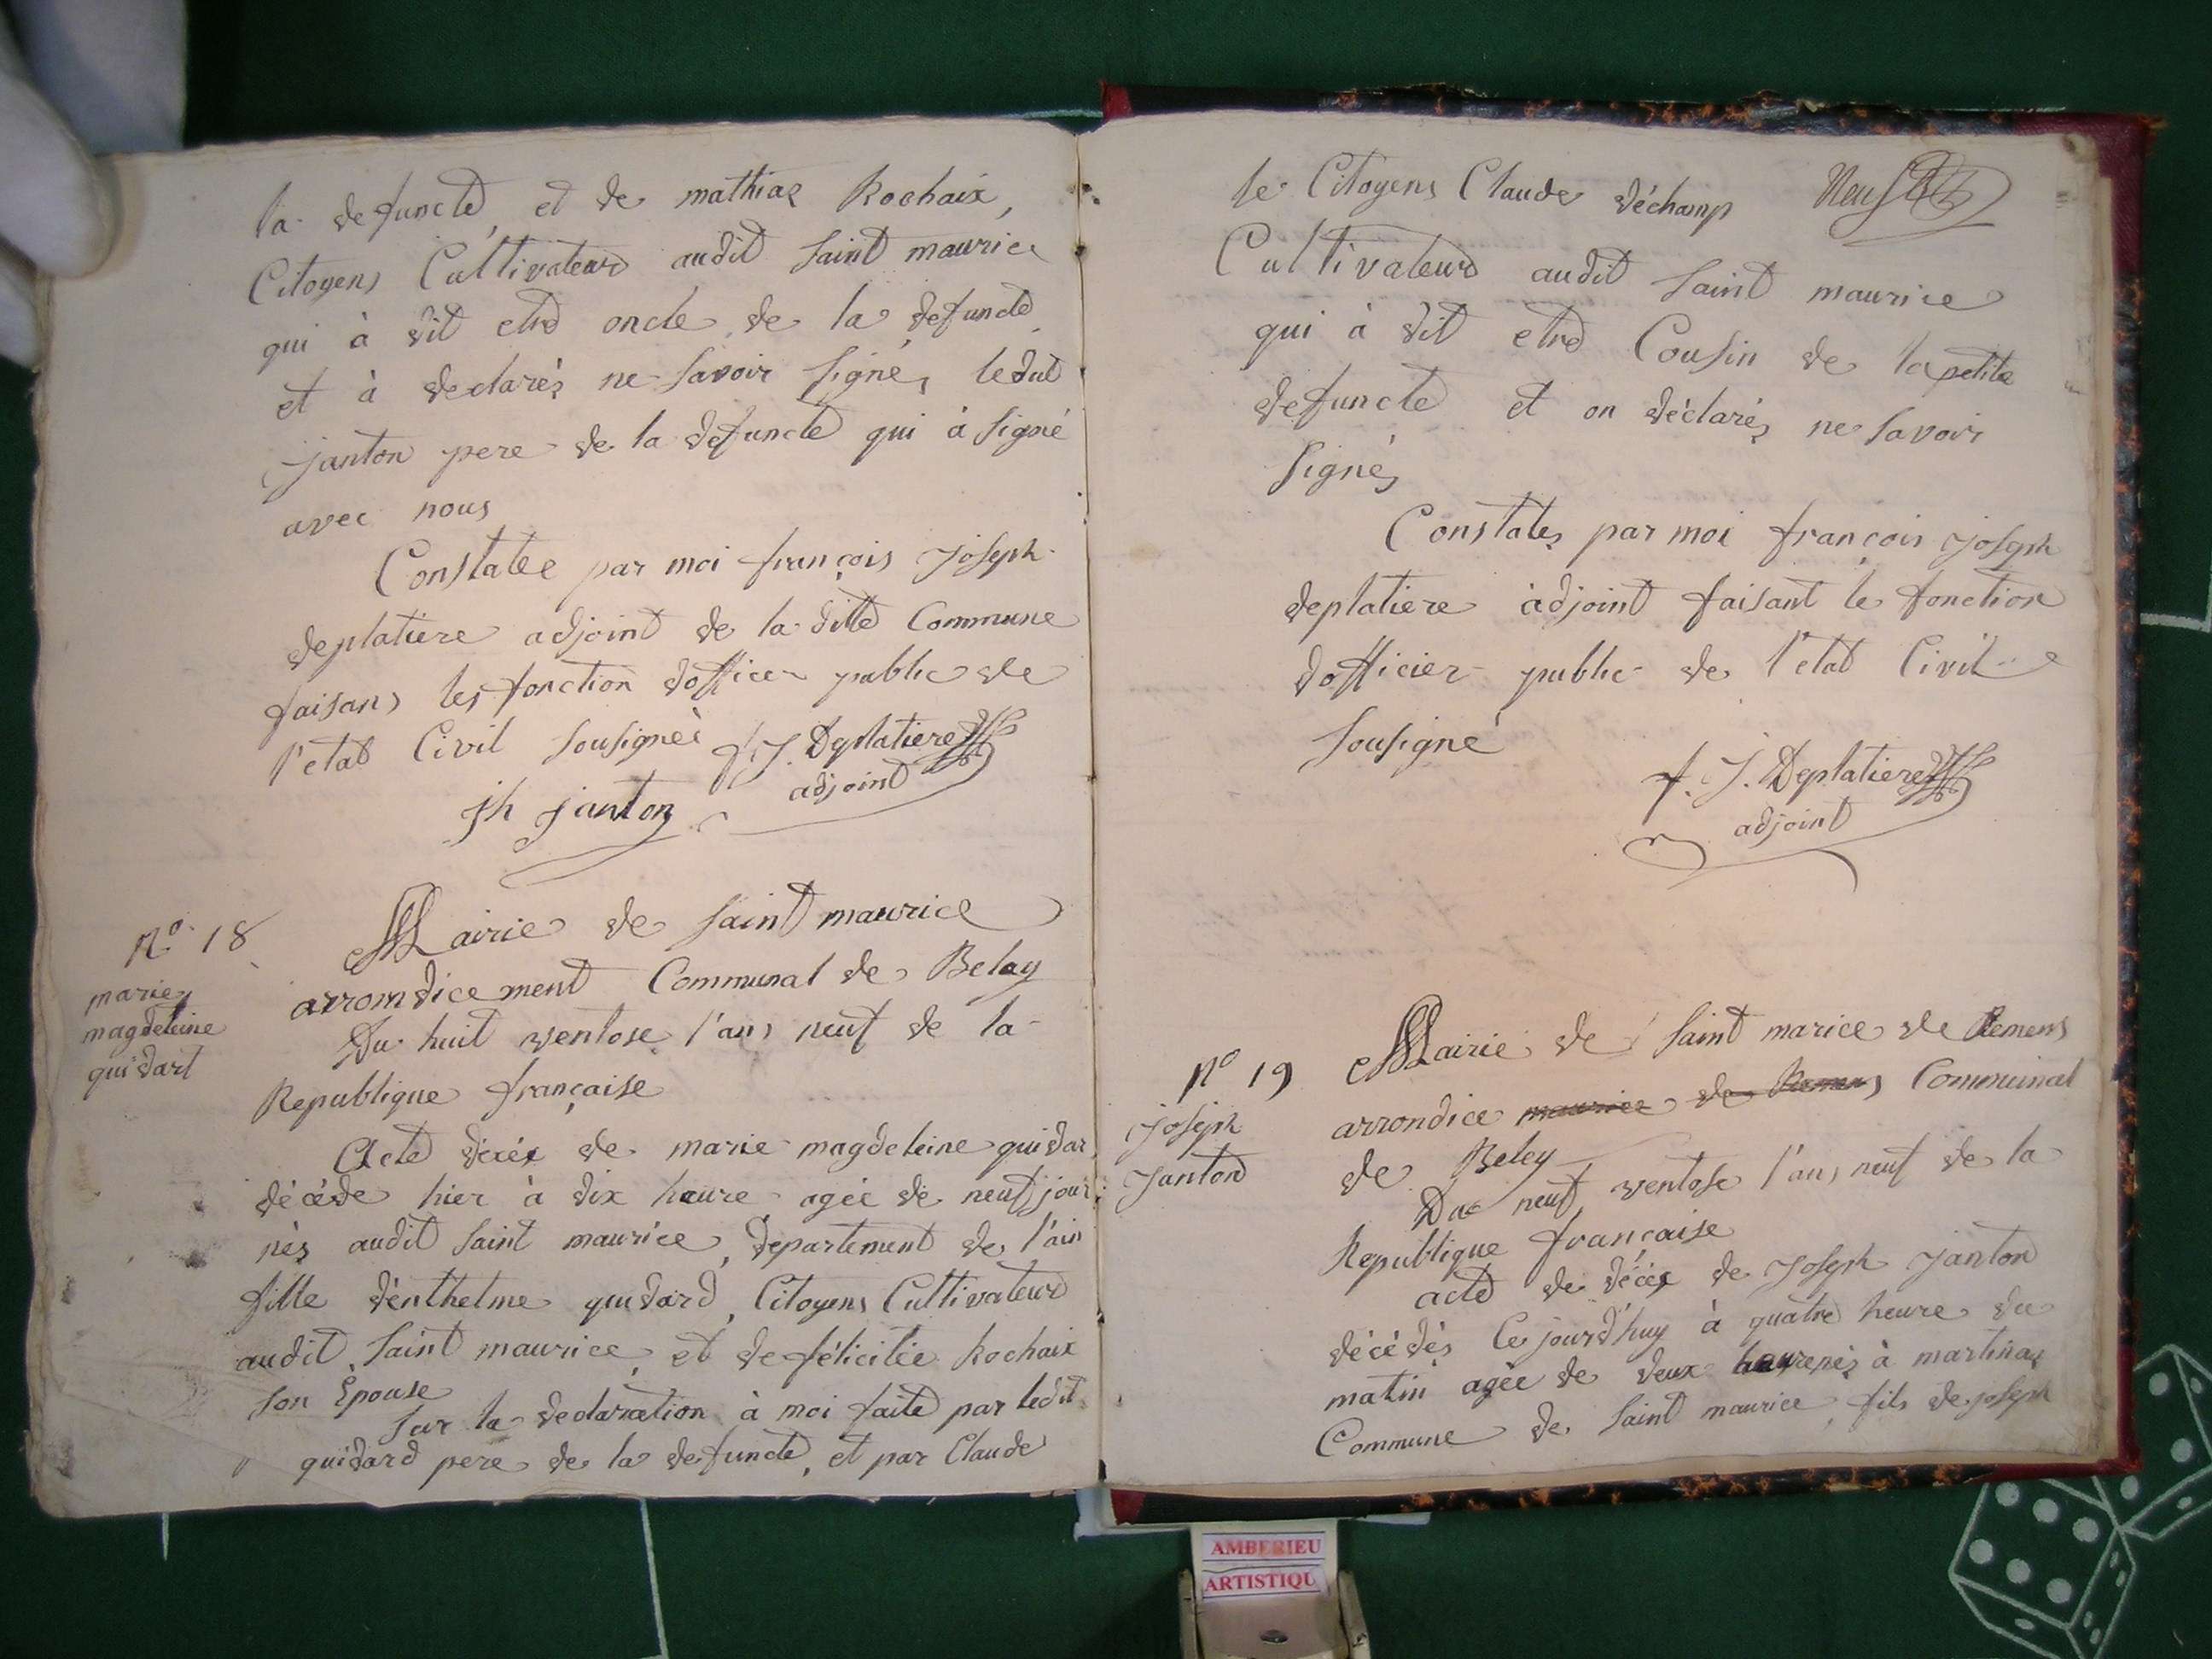 la defuncte, et de mathias Rochaix,
Citoyens Cultivateur audit Saint maurice
qui à dit etre oncle de la defuncte
et à declarés ne Savoir Signé, ledit
janton pere de la defuncte qui à Signé
avec nous
Constatée par moi françois joseph
deplatiere adjoint de la ditte Commune
faisans les fonction dofficer public de
l'etat Civil Sousignéé f. J. Deplatiere
adjoint
jh janton
No. 18
marie
magdeleine
quidart
Mairie de Saint maurice
arromdicement Communal de Beley
Du huit ventose l'ans neuf de la
Republique française
Acte décés de marie magdeleine quidar
décéde hier à dix heure agée de neuf jour
nés audit Saint maurice, departement de l'ain
fille dénthelme quidard, Citoyens Cultivateur
audit Saint maurice, et de féliciteé Rochaix
son Epouse
Sur la declaration à moi faite par ledit
quidard pere de la defuncte, et par Claude
le Citoyens Claude déchamp
Cultivateur audit Saint maurice
qui à dit etre Cousin de la petite
defuncte et on déclarés ne Savoir
Signés
Constates par moi françois joseph
deplatiere àdjoint faisant le fonction
dofficier public de l'etat Civil
Sousigné
f. J. Deplatiere
adjoint
No 19
joseph
Janton
Mairie de Saint marice de Remens
arrondice maurice de Remens Communal
de Beley
Du neuf ventose l'ans neuf de la
Republique française
acte de décés de Joseph janton
décédés Ce jourd'huy à quatre heure du
matin agée de deux heure nés à martinas
Commune de Saint maurice, fils de joseph
AMBERIEU
ARTISTIQU